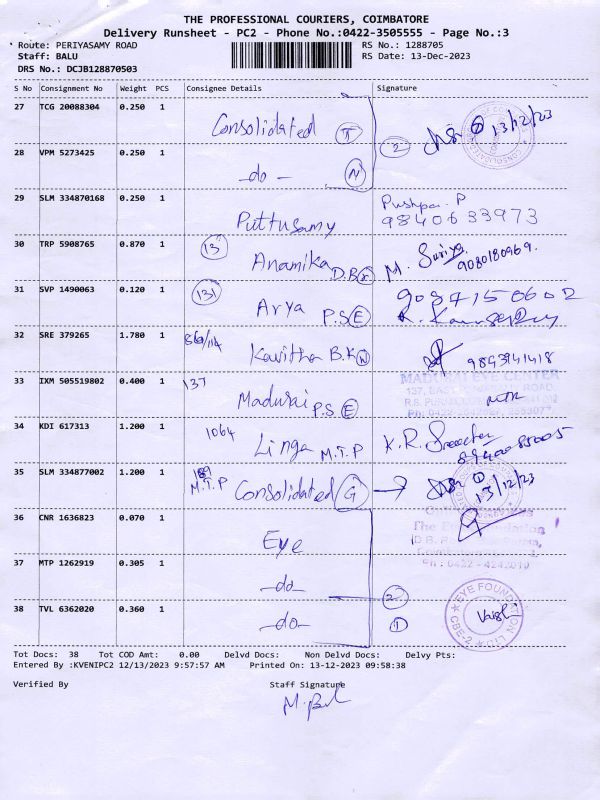 THE PROFESSIONAL COURIERS, COIMBATORE
Delivery Runsheet - PC2 - Phone No.:0422-3505555 - Page No.:3
Route: PERIYASAMY ROAD RS No.: 1288705
Staff: BALU RS Date: 13-Dec-2023
DRS No.: DCJB128870503
S No Consignment No Weight PCS Consignee Details Signature
27 TCG 20088304 0.250 1 Consolidated T 2 13/12/23
28 VPM 5273425 0.250 1 -do- N
29 SLM 334870168 0.250 1 Puttusamy Pushpa. P
9840633973
30 TRP 5908765 0.870 1 13 Anamika D.B M. Suriya
9080180969.
31 SVP 1490063 0.120 1 131 Arya P.S E
32 SRE 379265 1.780 1 Kavitha B.K N
33 IXM 505519802 0.400 1 137 Madurai P.S E
MADURAI EYE CENTER
34 KDI 617313 1.200 1 1064 Linga M.T.P K.R.
35 SLM 334877002 1.200 1 189 M.T.P Consolidated G → 13/12/23
36 CNR 1636823 0.070 1 Eye
37 MTP 1262919 0.305 1 -do-
38 TVL 6362020 0.360 1 -do- 2 1
EYE FOUNDATION
CBE-2
Tot Docs: 38 Tot COD Amt: 0.00 Delvd Docs: Non Delvd Docs: Delvy Pts:
Entered By :KVENIPC2 12/13/2023 9:57:57 AM Printed On: 13-12-2023 09:58:38
Verified By Staff Signature